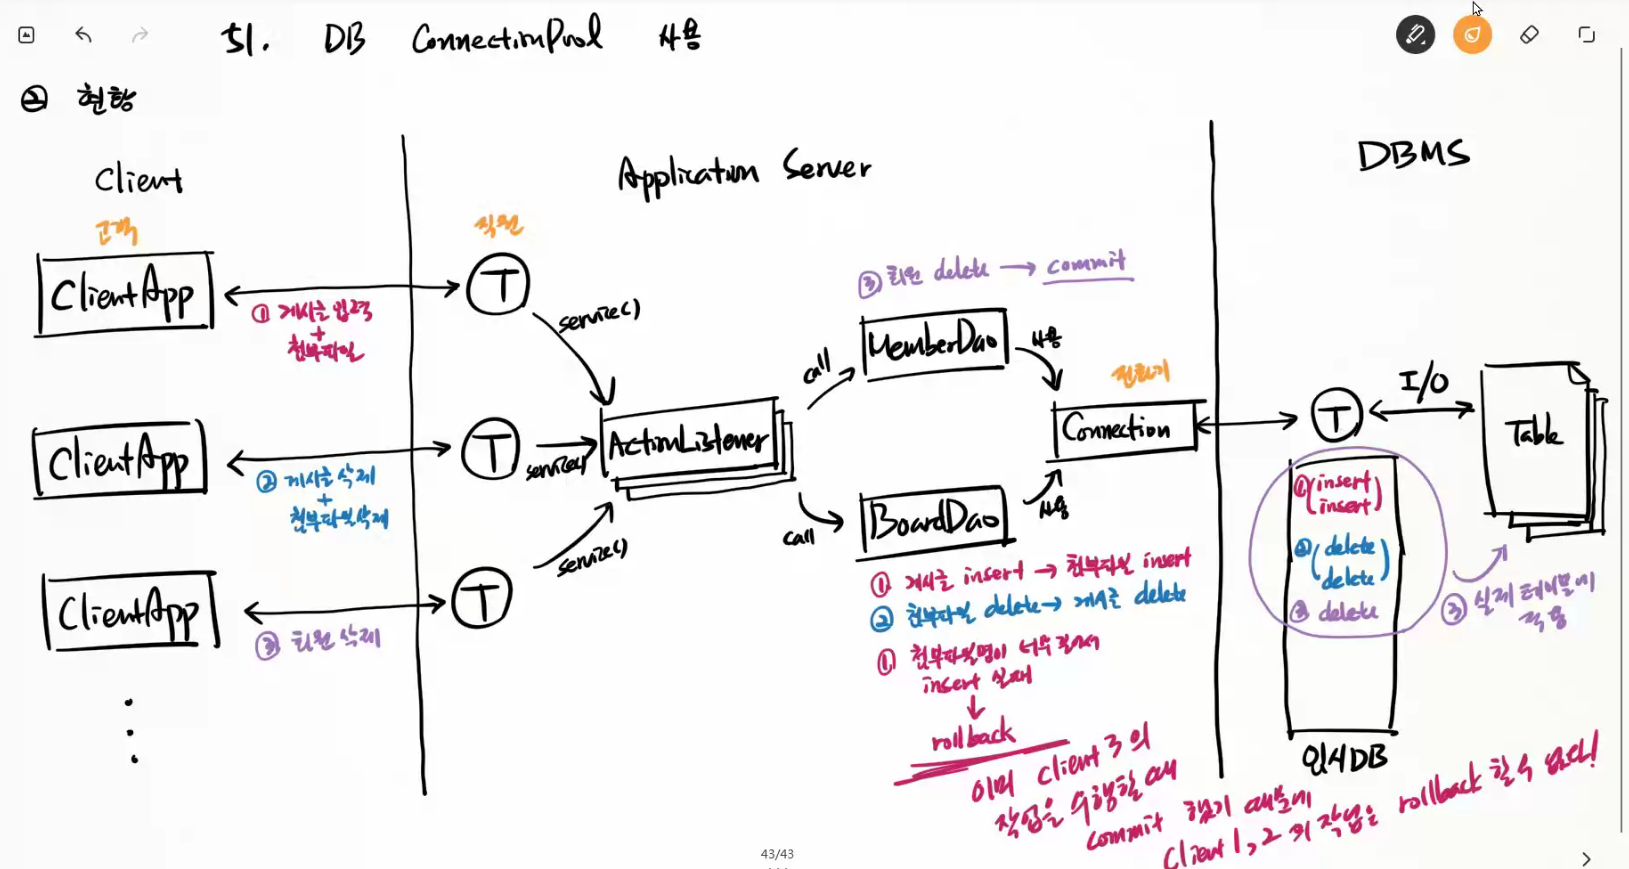 51. DB ConnectionPool 사용
② 현황
Client
고객
ClientApp
① 게시글 입력
+
첨부파일
ClientApp
② 게시글 삭제
+
첨부파일 삭제
ClientApp
③ 회원 삭제
Application Server
직원
T
service()
T
service()
T
service()
ActionListener
call
call
③ 회원 delete → commit
MemberDao
사용
BoardDao
사용
전화기
Connection
① 게시글 insert → 첨부파일 insert
② 첨부파일 delete → 게시글 delete
① 첨부파일명이 너무 길어서
insert 실패
↓
rollback
이미 client 3의
작업을 수행할 때
commit 했기 때문에
client 1, 2의 작업은 rollback 할 수 없다!
DBMS
T
I/O
Table
① insert
insert
② delete
delete
③ delete
③ 실제 테이블에
적용
임시DB
43/43